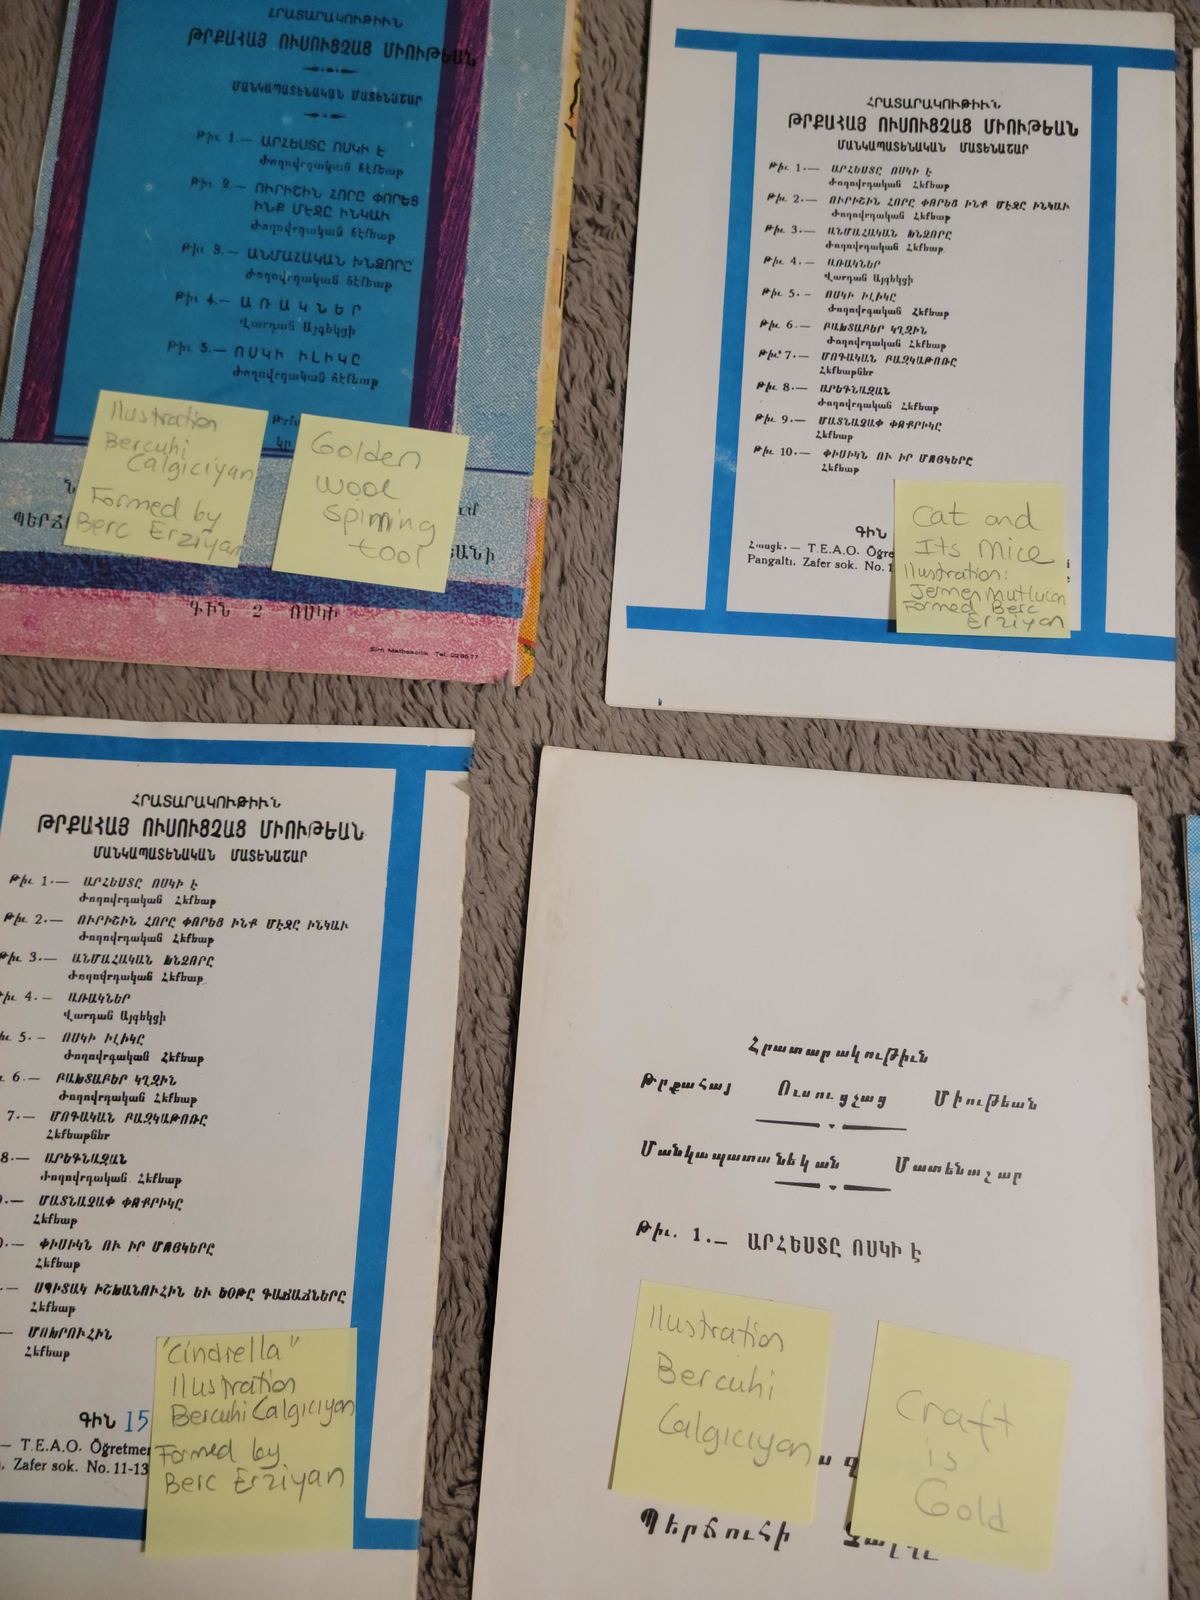 ՀՐԱՏԱՐԱԿՈՒԹԻՒՆ
ԹՐՔԱՀԱՅ ՈՒՍՈՒՑՉԱՑ ՄԻՈՒԹԵԱՆ
ՄԱՆԿԱՊԱՏԵՆԱԿԱՆ ՄԱՏԵՆԱՇԱՐ
Թիւ 1.— ԱՐՀԵՍՏԸ ՈՍԿԻ Է
Ժողովրդական հէքեաթ
Թիւ 2.— ՈՒՐԻՇԻՆ ՀՈՐԸ ՓՈՐԵՑ
ԻՆՔ ՄԷՋԸ ԻՆԿԱՒ
Ժողովրդական հէքեաթ
Թիւ 3.— ԱՆՄԱՀԱԿԱՆ ԽՆՁՈՐԸ
Ժողովրդական հէքեաթ
Թիւ 4.— ԱՌԱԿՆԵՐ
Վարդան Այգեկցի
Թիւ 5.— ՈՍԿԻ ԻԼԻԿԸ
Ժողովրդական հէքեաթ
Ilustration
Bercuhi
Calgiciyan
Formed by
Berc Erziyan
Golden
wool
spinning
tool
ԳԻՆ 2 ՈՍԿԻ
Sirri Matbaacılık Tel. 228577
ՀՐԱՏԱՐԱԿՈՒԹԻՒՆ
ԹՐՔԱՀԱՅ ՈՒՍՈՒՑՉԱՑ ՄԻՈՒԹԵԱՆ
ՄԱՆԿԱՊԱՏԵՆԱԿԱՆ ՄԱՏԵՆԱՇԱՐ
Թիւ 1.— ԱՐՀԵՍՏԸ ՈՍԿԻ Է
Ժողովրդական Հէքեաթ
Թիւ 2.— ՈՒՐԻՇԻՆ ՀՈՐԸ ՓՈՐԵՑ ԻՆՔ ՄԷՋԸ ԻՆԿԱՒ
Ժողովրդական Հէքեաթ
Թիւ 3.— ԱՆՄԱՀԱԿԱՆ ԽՆՁՈՐԸ
Ժողովրդական Հէքեաթ
Թիւ 4.— ԱՌԱԿՆԵՐ
Վարդան Այգեկցի
Թիւ 5.- ՈՍԿԻ ԻԼԻԿԸ
Ժողովրդական Հէքեաթ
Թիւ 6.— ԲԱԽՏԱԲԵՐ ԿՂԶԻՆ
Ժողովրդական Հէքեաթ
Թիւ 7.— ՄՈԳԱԿԱՆ ԲԱԶԿԱԹՈՌԸ
Հէքեաթներ
Թիւ 8.— ԱՐԵԳՆԱԶԱՆ
Ժողովրդական Հէքեաթ
Թիւ 9.— ՄԱՏՆԱՉԱՓ ՓՈՔՐԻԿԸ
Հէքեաթ
Թիւ 10.— ՓԻՍԻԿՆ ՈՒ ԻՐ ՄԿՅԿԵՐԸ
Հէքեաթ
ԳԻՆ
Հասցէ.— T.E.A.O. Öğre
Pangaltı, Zafer sok. No. 1
Cat and
Its Mice
Ilustration:
Jermen Mutlucan
Formed Berc
Erziyan
ՀՐԱՏԱՐԱԿՈՒԹԻՒՆ
ԹՐՔԱՀԱՅ ՈՒՍՈՒՑՉԱՑ ՄԻՈՒԹԵԱՆ
ՄԱՆԿԱՊԱՏԵՆԱԿԱՆ ՄԱՏԵՆԱՇԱՐ
Թիւ 1.— ԱՐՀԵՍՏԸ ՈՍԿԻ Է
Ժողովրդական Հէքեաթ
Թիւ 2.— ՈՒՐԻՇԻՆ ՀՈՐԸ ՓՈՐԵՑ ԻՆՔ ՄԷՋԸ ԻՆԿԱՒ
Ժողովրդական Հէքեաթ
Թիւ 3.— ԱՆՄԱՀԱԿԱՆ ԽՆՁՈՐԸ
Ժողովրդական Հէքեաթ
4.— ԱՌԱԿՆԵՐ
Վարդան Այգեկցի
5.- ՈՍԿԻ ԻԼԻԿԸ
Ժողովրդական Հէքեաթ
6.— ԲԱԽՏԱԲԵՐ ԿՂԶԻՆ
Ժողովրդական Հէքեաթ
7.— ՄՈԳԱԿԱՆ ԲԱԶԿԱԹՈՌԸ
Հէքեաթներ
8.— ԱՐԵԳՆԱԶԱՆ
Ժողովրդական Հէքեաթ
.— ՄԱՏՆԱՉԱՓ ՓՈՔՐԻԿԸ
Հէքեաթ
.— ՓԻՍԻԿՆ ՈՒ ԻՐ ՄԿՅԿԵՐԸ
Հէքեաթ
.— ՍՊԻՏԱԿ ԻՇԽԱՆՈՒՀԻՆ ԵՒ ԵՕԹԸ ԳԱՃԱՃՆԵՐԸ
Հէքեաթ
— ՄՈԽՐՈՒՀԻՆ
Հէքեաթ
ԳԻՆ 15
— T.E.A.O. Öğretmen
, Zafer sok. No. 11-13
"Cindrella"
Ilustration
Bercuhi Calgiciyan
Formed by
Berc Erziyan
Հրատարակութիւն
Թրքահայ Ուսուցչաց Միութեան
Մանկապատանեկան Մատենաշար
Թիւ. 1.— ԱՐՀԵՍՏԸ ՈՍԿԻ Է
Ilustration
Bercuhi
Calgiciyan
Craft
is
Gold
Պերճուհի